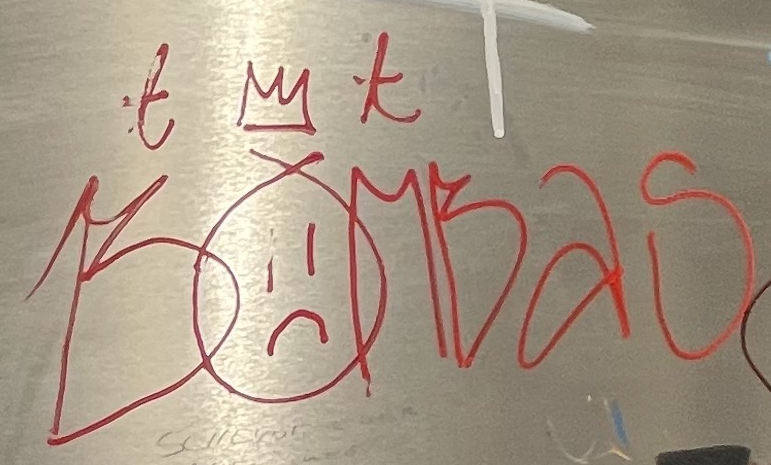 t t
BOMBAS